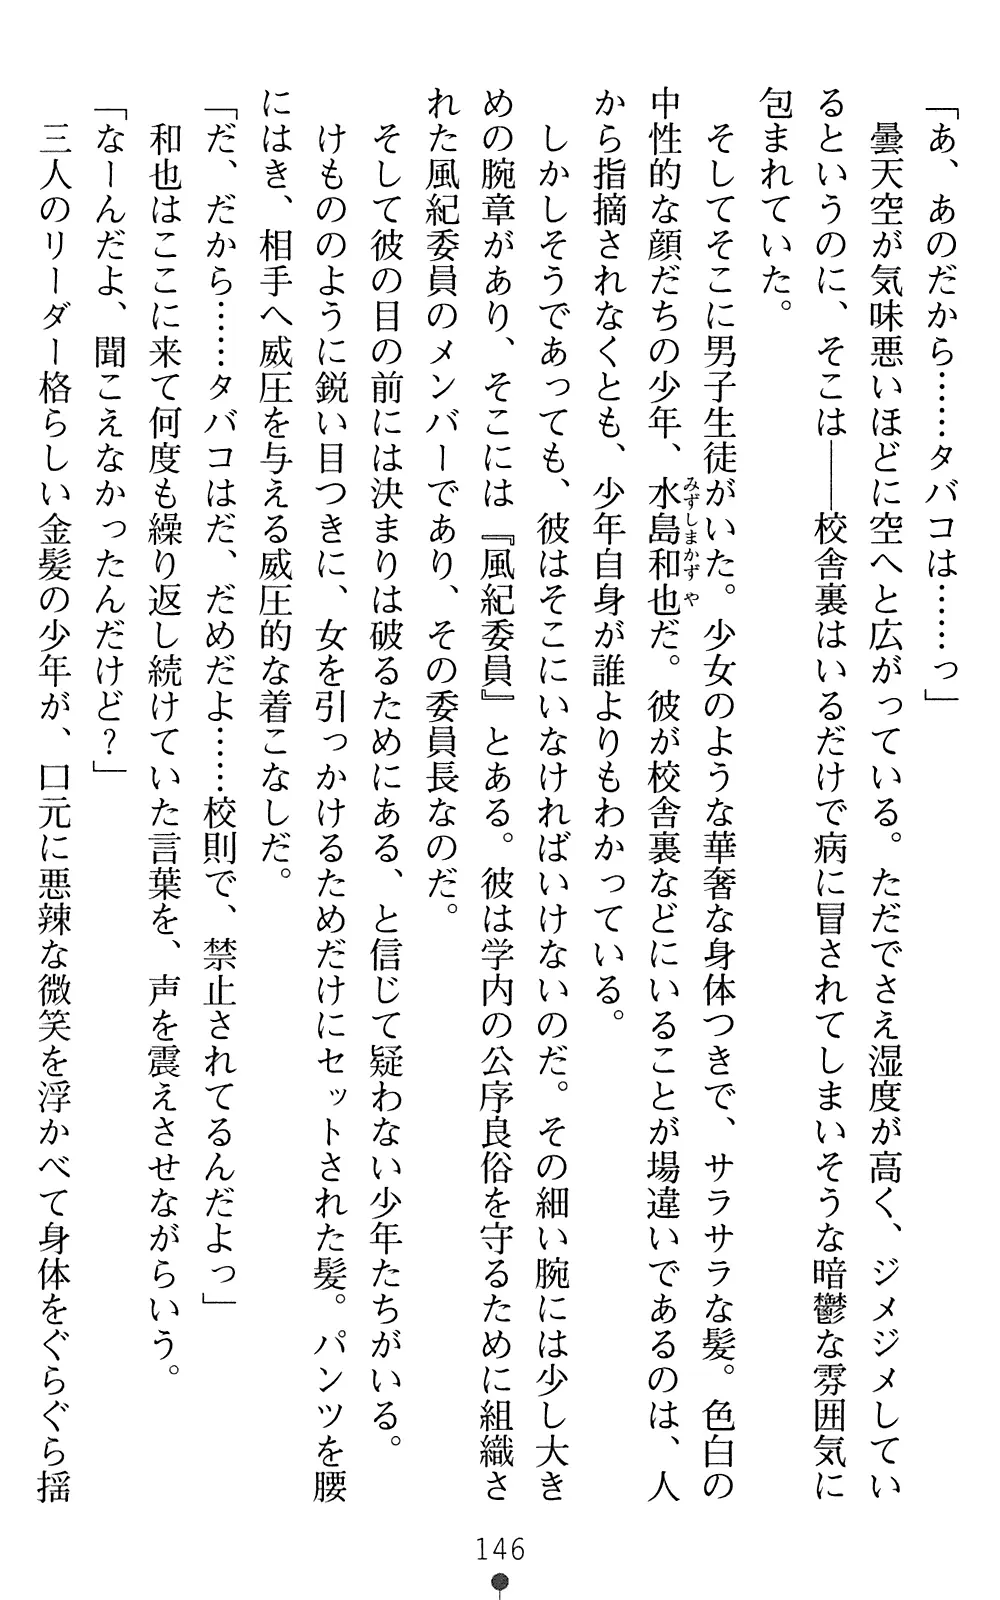 「あ、あのだから……タバコは……っ」
　曇天空が気味悪いほどに空へと広がっている。ただでさえ湿度が高く、ジメジメしてい
るというのに、そこは――校舎裏はいるだけで病に冒されてしまいそうな暗鬱な雰囲気に
包まれていた。
　そしてそこに男子生徒がいた。少女のような華奢な身体つきで、サラサラな髪。色白の
中性的な顔だちの少年、水島和也だ。彼が校舎裏などにいることが場違いであるのは、人
みずしまかずや
から指摘されなくとも、少年自身が誰よりもわかっている。
　しかしそうであっても、彼はそこにいなければいけないのだ。その細い腕には少し大き
めの腕章があり、そこには『風紀委員』とある。彼は学内の公序良俗を守るために組織さ
れた風紀委員のメンバーであり、その委員長なのだ。
　そして彼の目の前には決まりは破るためにある、と信じて疑わない少年たちがいる。
　けもののように鋭い目つきに、女を引っかけるためだけにセットされた髪。パンツを腰
にはき、相手へ威圧を与える威圧的な着こなしだ。
「だ、だから……タバコはだ、だめだよ……校則で、禁止されてるんだよっ」
　和也はここに来て何度も繰り返し続けていた言葉を、声を震えさせながらいう。
「なーんだよ、聞こえなかったんだけど？」
　三人のリーダー格らしい金髪の少年が、口元に悪辣な微笑を浮かべて身体をぐらぐら揺
146